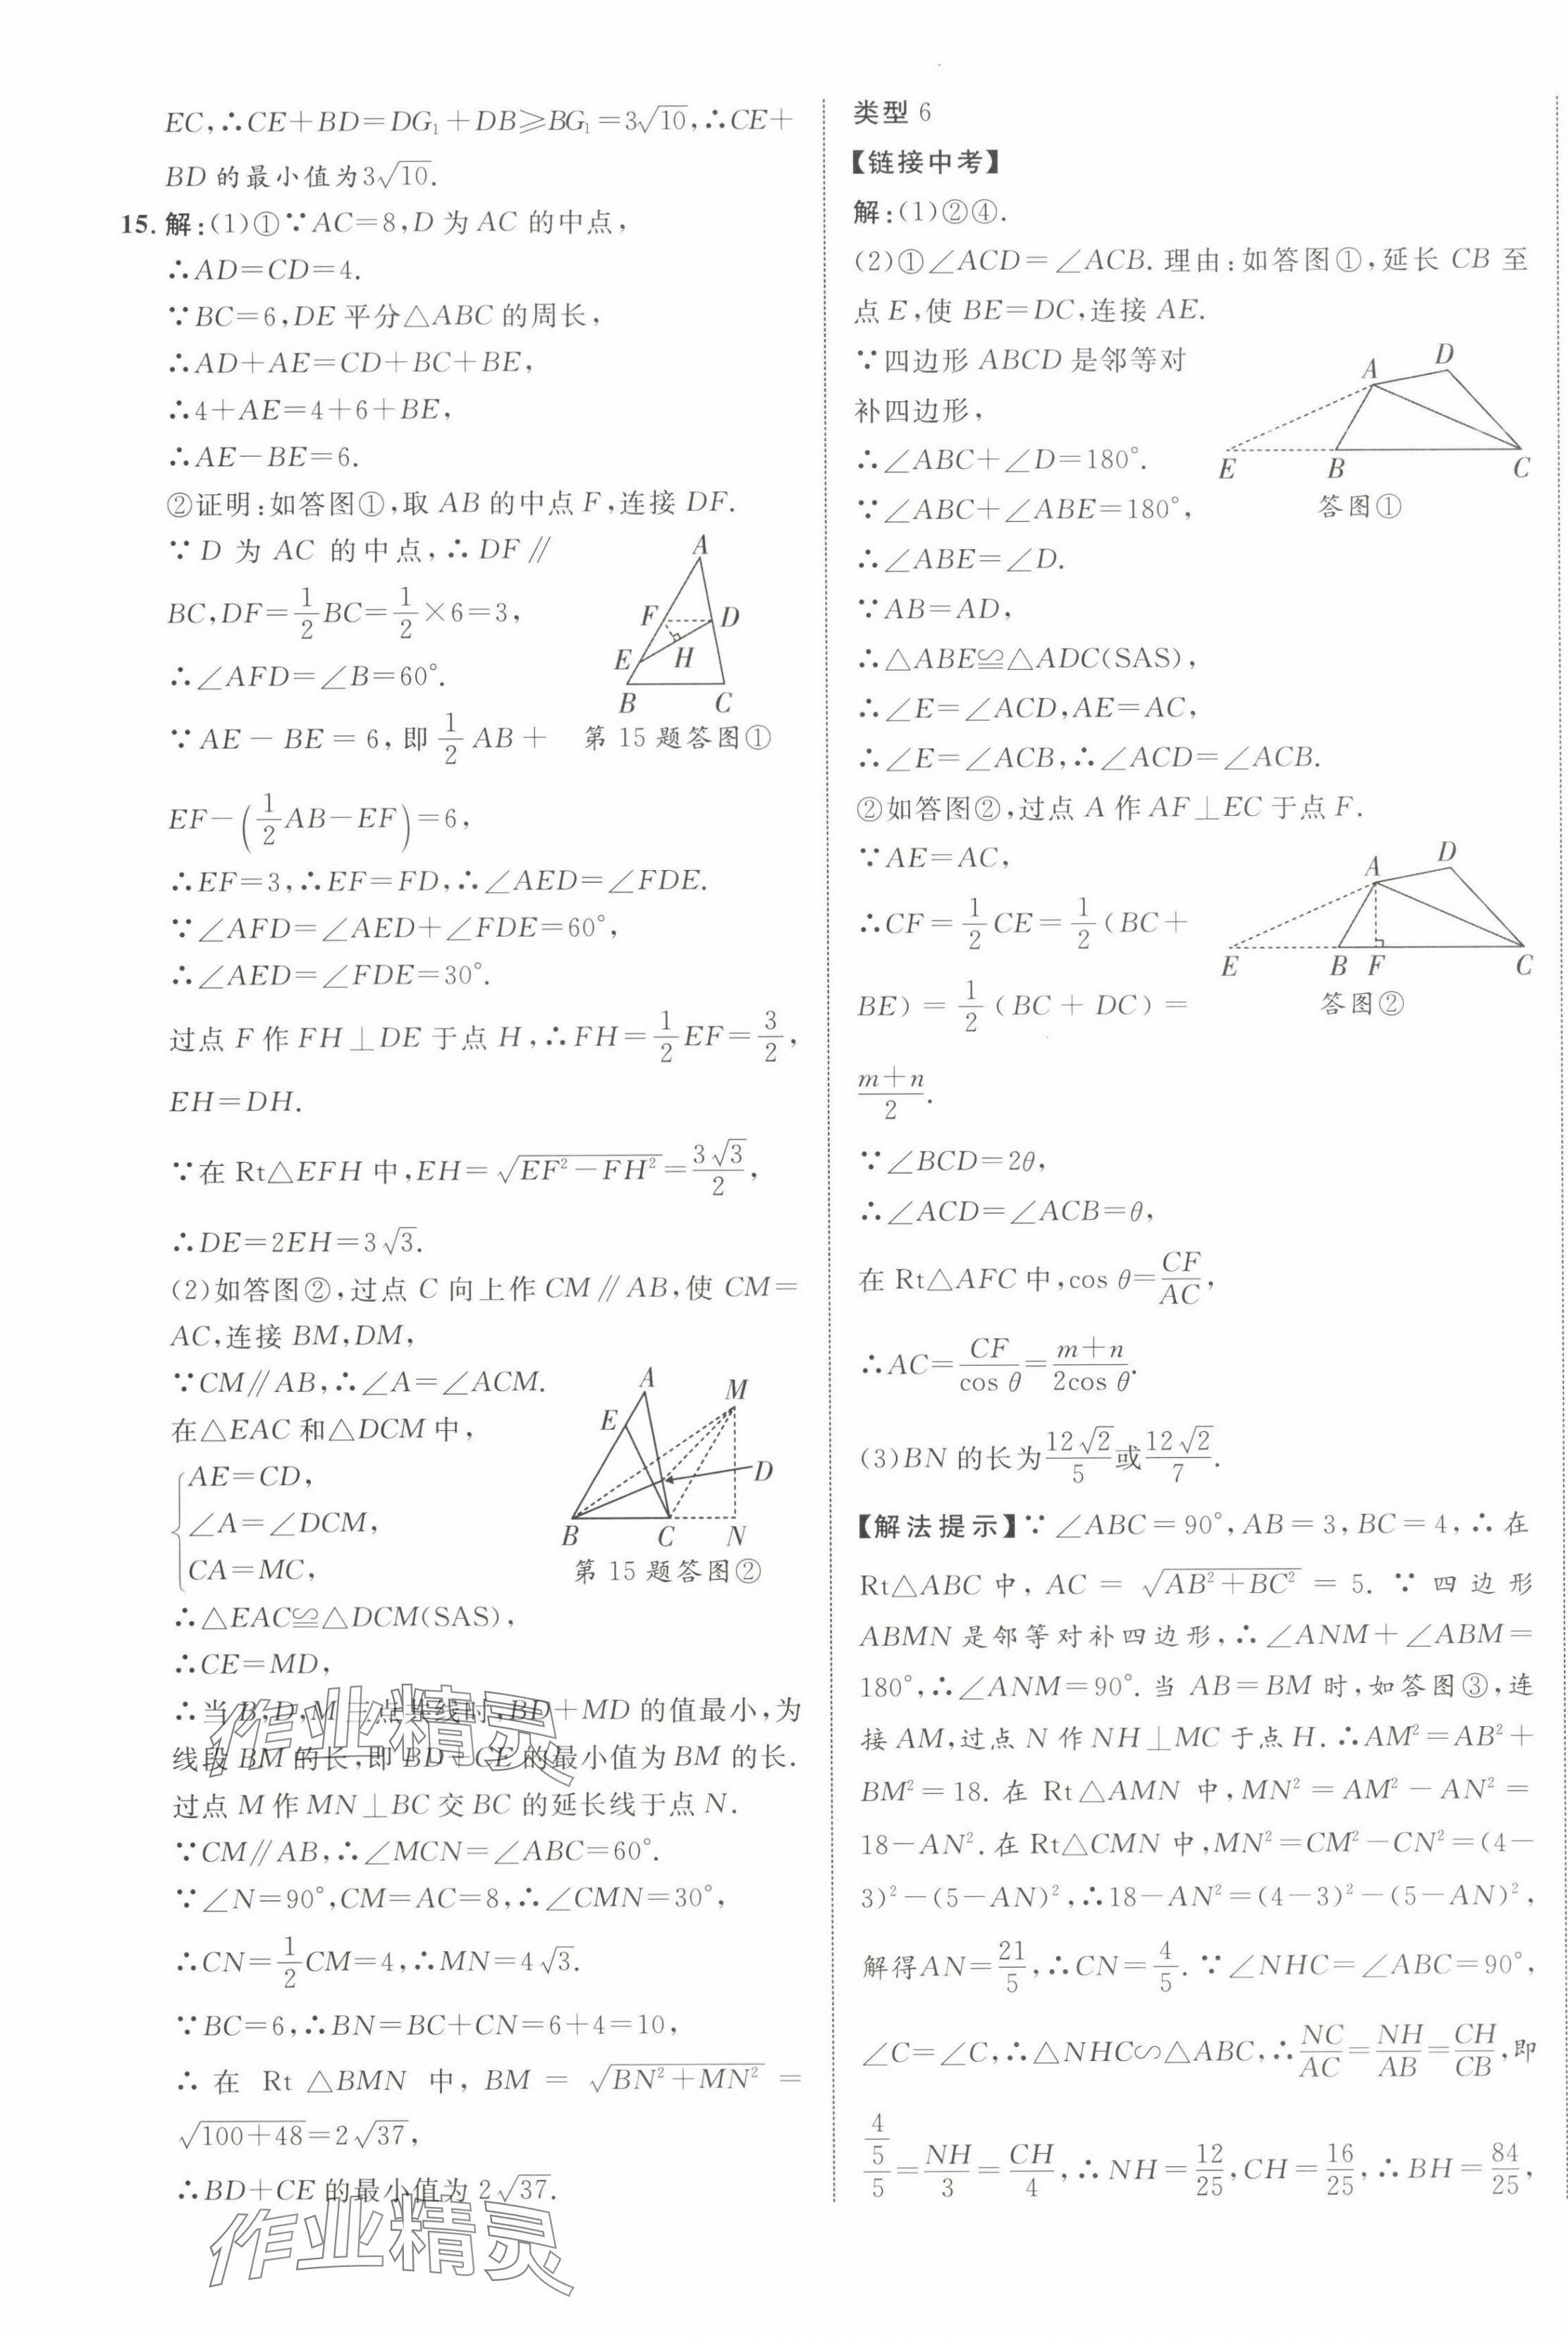 EC,∴CE+BD=DG₁+DB≥BG₁=3√10,∴CE+
BD 的最小值为3√10.
15. 解:(1)①∵AC=8,D 为 AC 的中点,
∴AD=CD=4.
∵BC=6,DE 平分△ABC 的周长,
∴AD+AE=CD+BC+BE,
∴4+AE=4+6+BE,
∴AE-BE=6.
②证明:如答图①,取 AB 的中点 F,连接 DF.
∵D 为 AC 的中点,∴DF∥
BC,DF=1/2BC=1/2×6=3,
∴∠AFD=∠B=60°.
∵AE-BE=6,即 1/2 AB+
A
F
D
E
H
B
C
第 15 题答图①
EF-(1/2AB-EF)=6,
∴EF=3,∴EF=FD,∴∠AED=∠FDE.
∵∠AFD=∠AED+∠FDE=60°,
∴∠AED=∠FDE=30°.
过点 F 作 FH⊥DE 于点 H,∴FH=1/2EF=3/2,
EH=DH.
∵在 Rt△EFH 中,EH=√(EF²-FH²)=3√3/2,
∴DE=2EH=3√3.
(2)如答图②,过点 C 向上作 CM∥AB,使 CM=
AC,连接 BM,DM,
∵CM∥AB,∴∠A=∠ACM.
在△EAC 和△DCM 中,
{AE=CD,
∠A=∠DCM,
CA=MC,
A
M
E
D
B
C
N
第 15 题答图②
∴△EAC≌△DCM(SAS),
∴CE=MD,
∴当 B,D,M 三点共线时,BD+MD 的值最小,为
线段 BM 的长,即 BD+CE 的最小值为 BM 的长.
过点 M 作 MN⊥BC 交 BC 的延长线于点 N.
∵CM∥AB,∴∠MCN=∠ABC=60°.
∵∠N=90°,CM=AC=8,∴∠CMN=30°,
∴CN=1/2CM=4,∴MN=4√3.
∵BC=6,∴BN=BC+CN=6+4=10,
∴在 Rt△BMN 中,BM=√(BN²+MN²)=
√(100+48)=2√37,
∴BD+CE 的最小值为 2√37.
作业精灵
作业精灵
类型 6
【链接中考】
解:(1)②④.
(2)①∠ACD=∠ACB. 理由:如答图①,延长 CB 至
点 E,使 BE=DC,连接 AE.
∵四边形 ABCD 是邻等对
补四边形,
∴∠ABC+∠D=180°.
∵∠ABC+∠ABE=180°,
A
D
E
B
C
答图①
∴∠ABE=∠D.
∵AB=AD,
∴△ABE≌△ADC(SAS),
∴∠E=∠ACD,AE=AC,
∴∠E=∠ACB,∴∠ACD=∠ACB.
②如答图②,过点 A 作 AF⊥EC 于点 F.
∵AE=AC,
∴CF=1/2CE=1/2(BC+
BE)=1/2(BC+DC)=
(m+n)/2.
A
D
E
B
F
C
答图②
∵∠BCD=2θ,
∴∠ACD=∠ACB=θ,
在 Rt△AFC 中,cos θ=CF/AC,
∴AC=CF/cos θ=(m+n)/2cos θ.
(3)BN 的长为12√2/5或12√2/7.
【解法提示】∵∠ABC=90°,AB=3,BC=4,∴在
Rt△ABC 中,AC=√(AB²+BC²)=5.∵四边形
ABMN 是邻等对补四边形,∴∠ANM+∠ABM=
180°,∴∠ANM=90°. 当 AB=BM 时,如答图③,连
接 AM,过点 N 作 NH⊥MC 于点 H.∴AM²=AB²+
BM²=18. 在 Rt△AMN 中,MN²=AM²-AN²=
18-AN². 在 Rt△CMN 中,MN²=CM²-CN²=(4-
3)²-(5-AN)²,∴18-AN²=(4-3)²-(5-AN)²,
解得AN=21/5,∴CN=4/5.∵∠NHC=∠ABC=90°,
∠C=∠C,∴△NHC∽△ABC,∴NC/AC=NH/AB=CH/CB,即
(4/5)/5=NH/3=CH/4,∴NH=12/25,CH=16/25,∴BH=84/25,